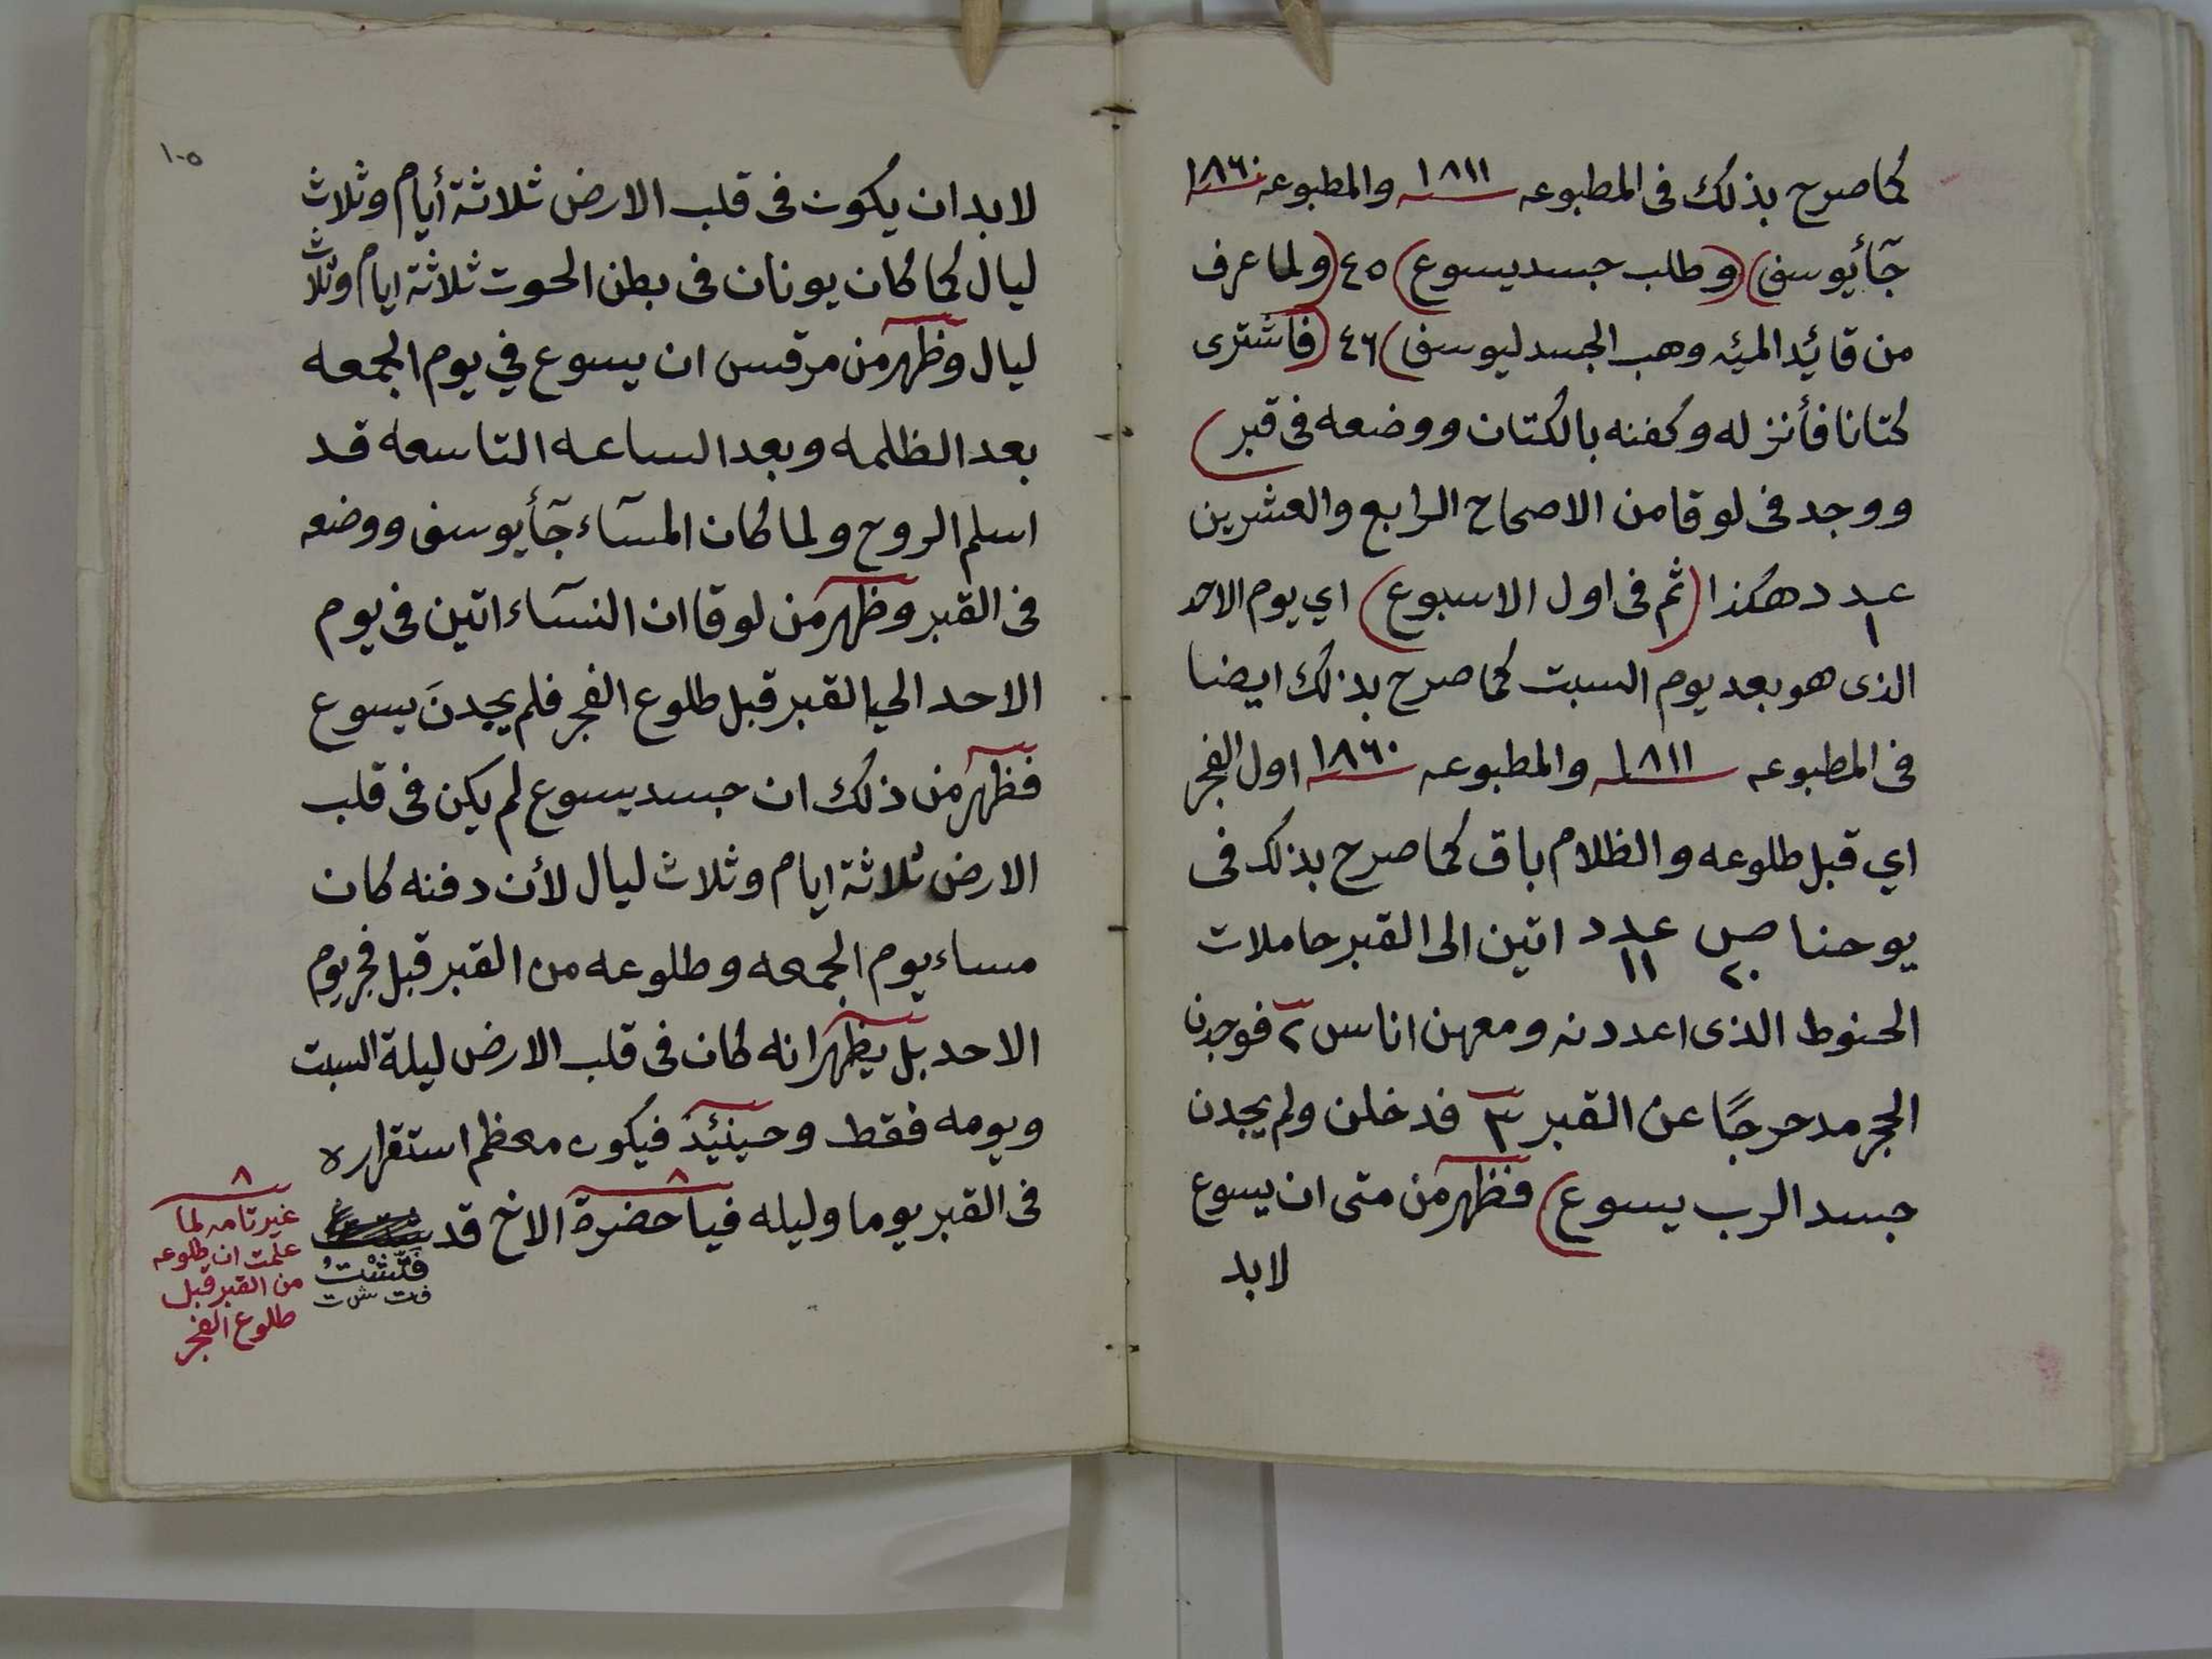 كما صرح بذلك فى المطبوعه ١٨١١ والمطبوعه ١٨٦٠
جآء يوسف) (وطلب جسد يسوع) ٤٥ (ولما عرف
من قائد الميئه وهب الجسد ليوسف) ٤٦ (فاشترى
كتانا فأنزله وكفنه بالكتان ووضعه فى قبر)
ووجد فى لوقا من الاصحاح الرابع والعشرين
عدد ١ هكذا (ثم فى اول الاسبوع) اي يوم الاحد
الذى هو بعد يوم السبت كما صرح بذلك ايضا
فى المطبوعه ١٨١١ والمطبوعه ١٨٦٠ اول الفجر
اي قبل طلوعه والظلام باق كما صرح بذلك فى
يوحنا ص ٢٠ عدد ١١ اتين الى القبر حاملات
الحنوط الذى اعددنه ومعهن اناس ٢ فوجدن
الحجر مدحرجًا عن القبر ٣ فدخلن ولم يجدن
جسد الرب يسوع) فظهر من متى ان يسوع
لا بد
١٠٥
لا بد ان يكون فى قلب الارض ثلاثة أيام وثلاث
ليال كما كان يونان فى بطن الحوت ثلاثة ايام وثلاث
ليال وظهر من مرقس ان يسوع في يوم الجمعه
بعد الظلمه وبعد الساعه التاسعه قد
اسلم الروح ولما كان المسآء جآء يوسف ووضعه
فى القبر وظهر من لوقا ان النسآء اتين فى يوم
الاحد الي القبر قبل طلوع الفجر فلم يجدنَ يسوع
فظهر من ذلك ان جسد يسوع لم يكن فى قلب
الارض ثلاثة ايام وثلاث ليال لأن دفنه كان
مساء يوم الجمعه وطلوعه من القبر قبل فجر يوم
الاحد بل يظهر انه كان فى قلب الارض ليلة السبت
ويومه فقط وحينئيذ فيكون معظم استقراره
فى القبر يوما وليله ٨ فيا حضرة الاخ قد
فتَّشْتُ
ف ت ش ت
٨
غير تامه لما
علمت ان طلوعه
من القبر قبل
طلوع الفجر